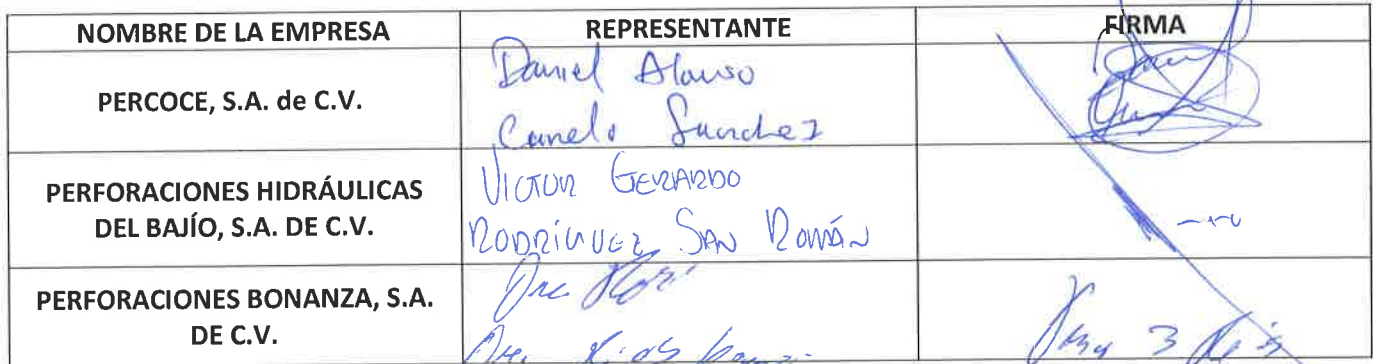 NOMBRE DE LA EMPRESA REPRESENTANTE FIRMA
PERCOCE, S.A. de C.V.
Daniel Alonso
Canelo Sanchez
PERFORACIONES HIDRÁULICAS
DEL BAJÍO, S.A. DE C.V.
VICTOR GERARDO
RODRÍGUEZ SAN ROMÁN
PERFORACIONES BONANZA, S.A.
DE C.V.